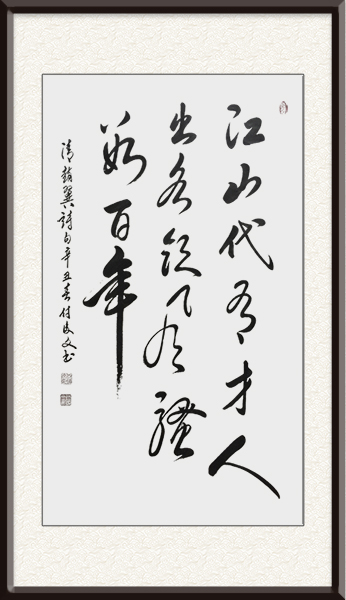 江山代有才人
出各领风骚
数百年
清赵翼诗句辛丑春付俊文书